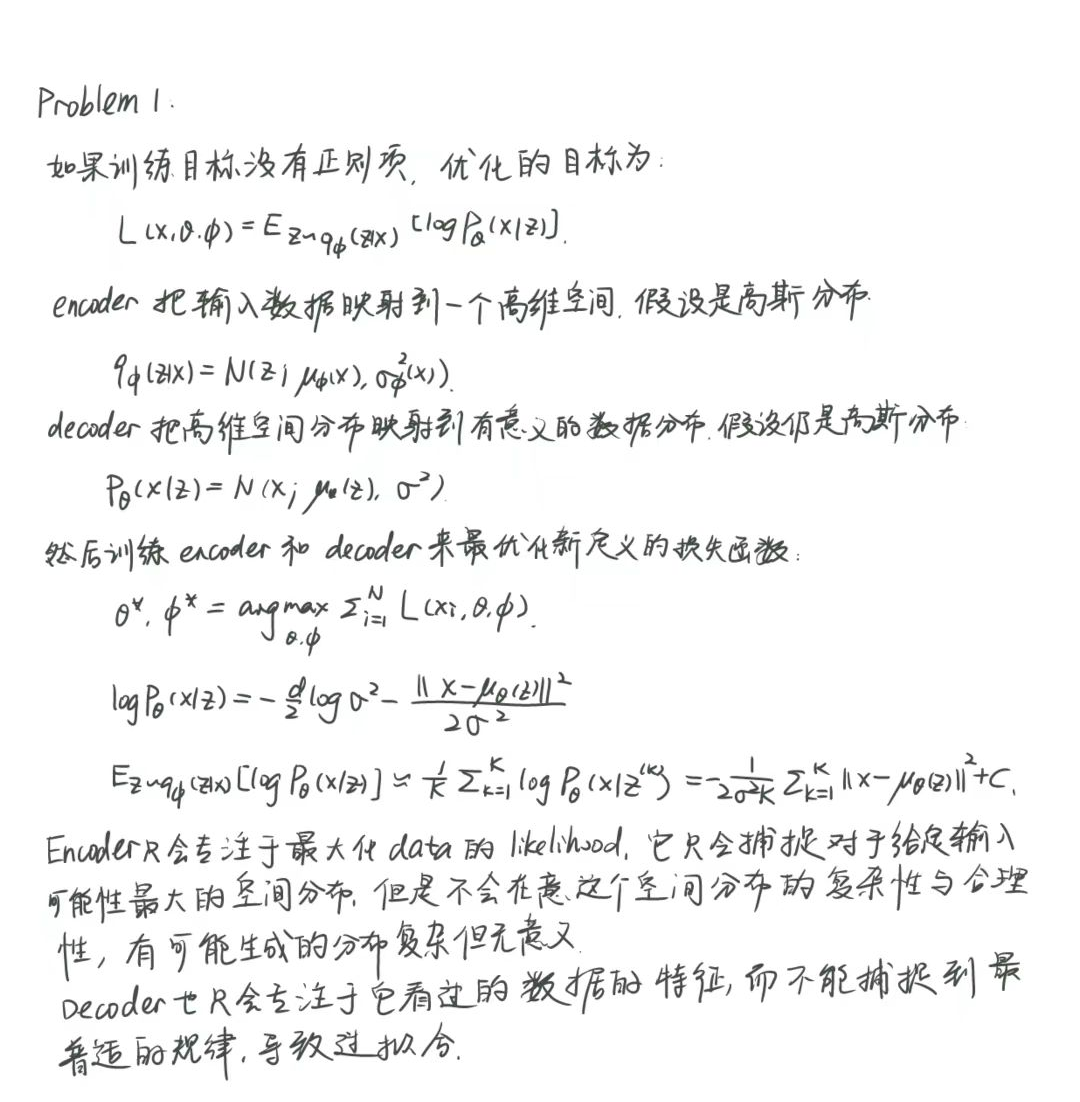 Problem 1.
如果训练目标没有正则项, 优化的目标为:
L(x,θ,ϕ) = E_{z∼q_ϕ(z|x)} [log P_θ(x|z)].
encoder 把输入数据映射到一个高维空间, 假设是高斯分布.
q_ϕ(z|x) = N(z; μ_ϕ(x), σ_ϕ^2(x)).
decoder 把高维空间分布映射到有意义的数据分布, 假设仍是高斯分布.
P_θ(x|z) = N(x; μ_θ(z), σ^2).
然后训练 encoder 和 decoder 来最优化新定义的损失函数:
θ^*, ϕ^* = argmax_{θ,ϕ} Σ_{i=1}^N L(x_i, θ, ϕ).
log P_θ(x|z) = -\frac{d}{2} log σ^2 - \frac{‖x-μ_θ(z)‖^2}{2σ^2}
E_{z∼q_ϕ(z|x)} [log P_θ(x|z)] ≈ \frac{1}{K} Σ_{k=1}^K log P_θ(x|z^{(k)}) = -\frac{1}{2σ^2K} Σ_{k=1}^K ‖x-μ_θ(z)‖^2 + C.
Encoder只会专注于最大化 data 的 likelihood, 它只会捕捉对于给定输入
可能性最大的空间分布, 但是不会在意这个空间分布的复杂性与合理
性, 有可能生成的分布复杂但无意义.
Decoder也只会专注于它看过的数据的特征, 而不能捕捉到最
普适的规律, 导致过拟合.